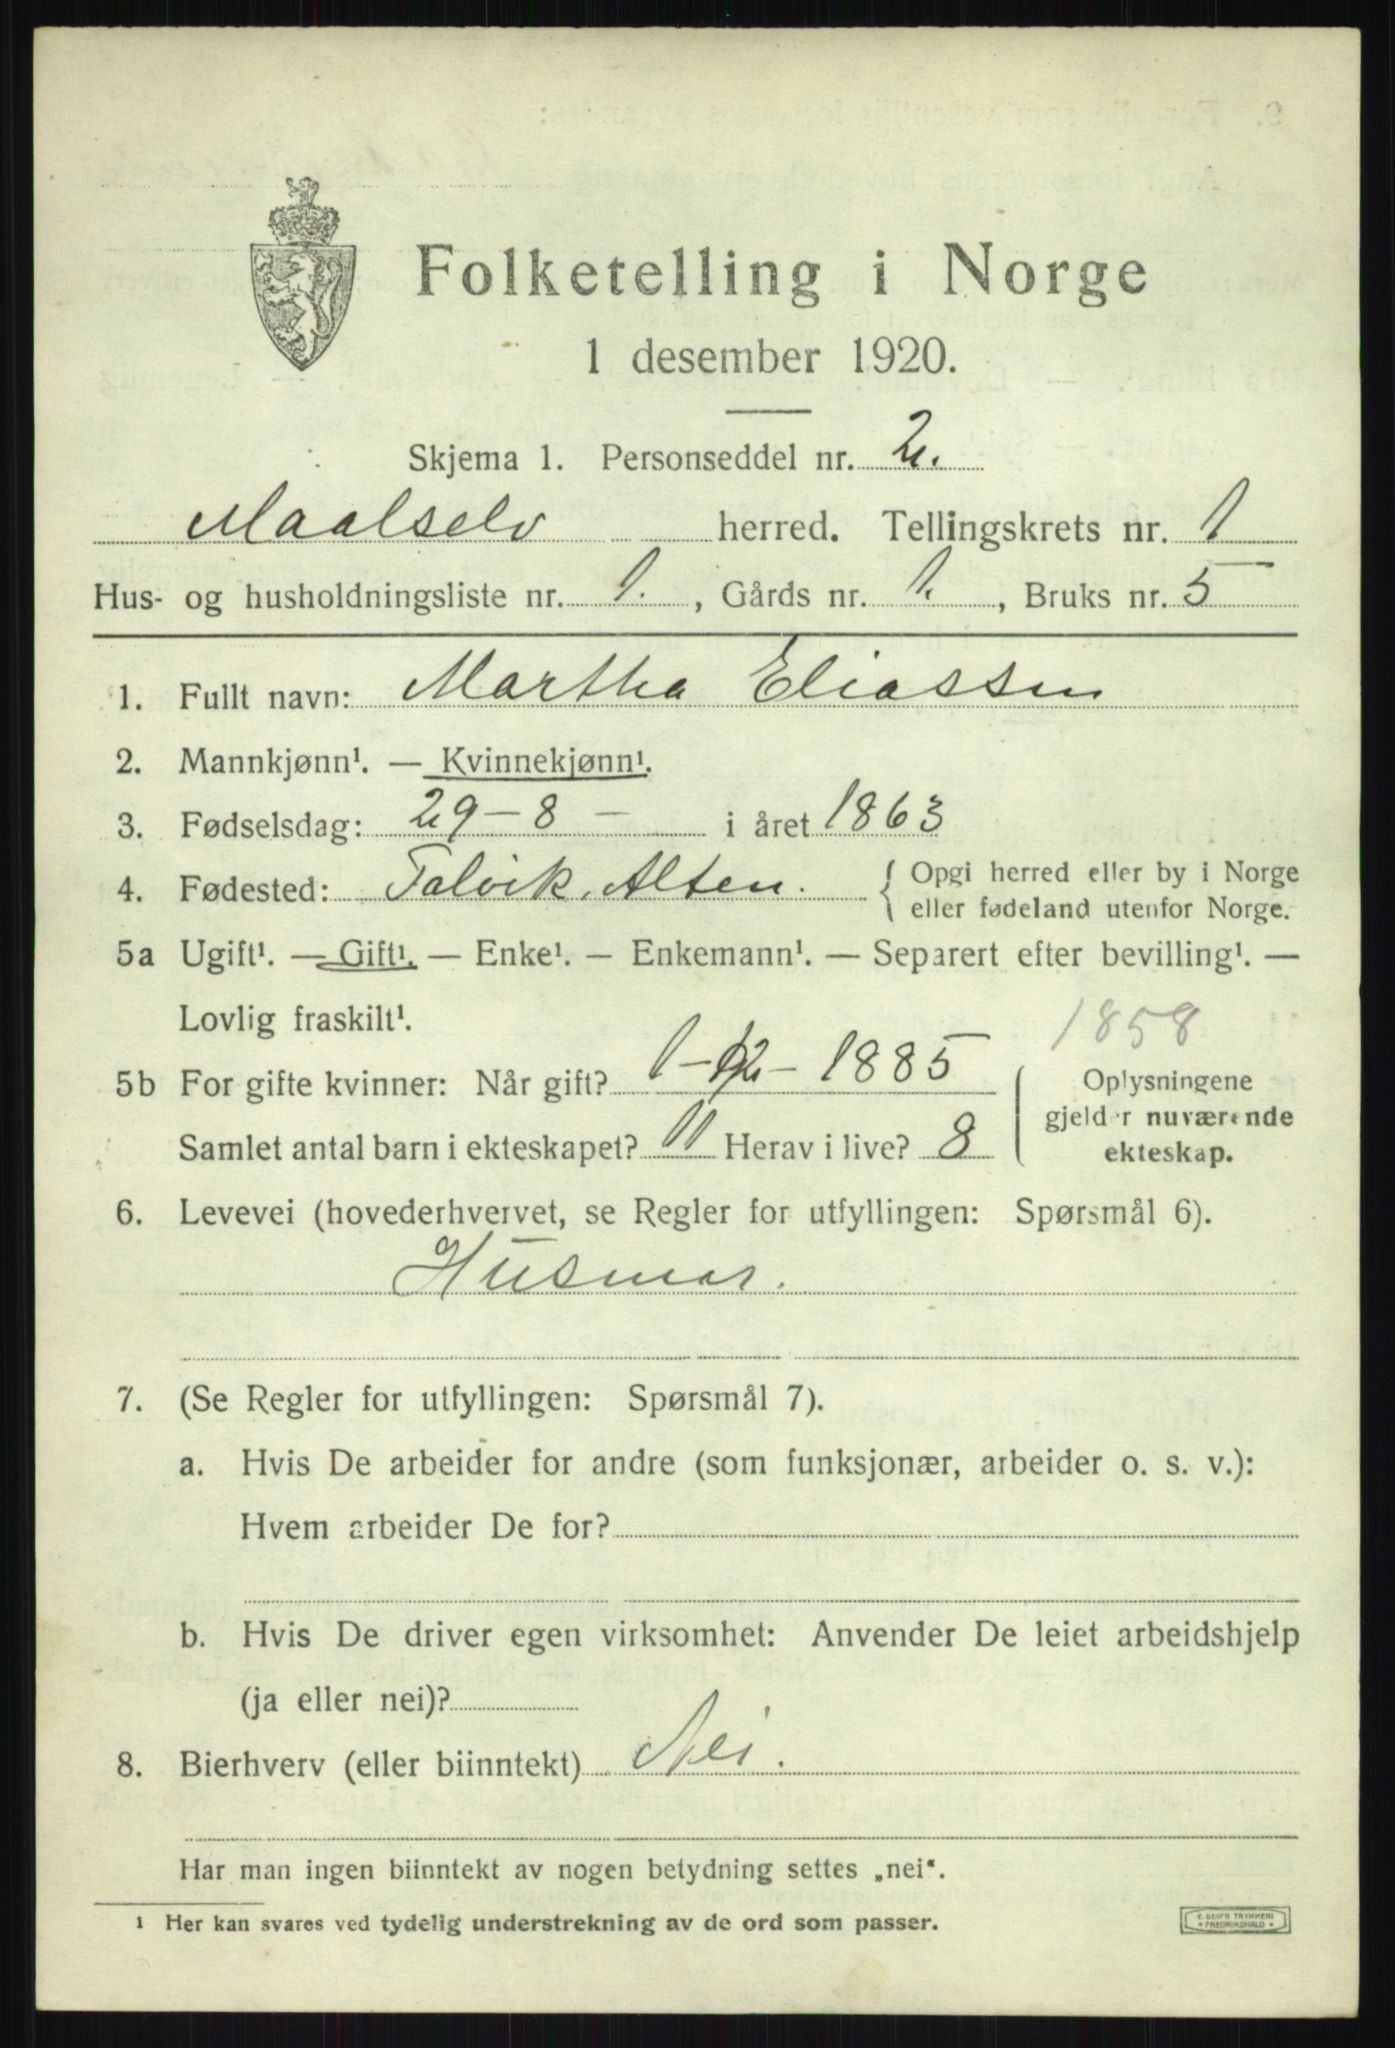 Folketelling i Norge
1 desember 1920.
Skjema 1. Personseddel nr. 2.
Maalselv herred. Tellingskrets nr. 1
Hus- og husholdningsliste nr. 1. , Gårds nr. 1. , Bruks nr. 5
1. Fullt navn: Martha Eliassen
2. Mannkjønn¹. — Kvinnekjønn¹.
3. Fødselsdag: 29 - 8 - i året 1863
4. Fødested: Talvik, Alten. { Opgi herred eller by i Norge
eller fødeland utenfor Norge.
5a Ugift¹. — Gift¹. — Enke¹. — Enkemann¹. — Separert efter bevilling¹. —
Lovlig fraskilt¹.
1858
5b For gifte kvinner: Når gift? 1-12-1885
Samlet antal barn i ekteskapet? 11 Herav i live? 8
Oplysningene
gjelder nuværende
ekteskap.
6. Levevei (hovederhvervet, se Regler for utfyllingen: Spørsmål 6).
Husmor.
7. (Se Regler for utfyllingen: Spørsmål 7).
a. Hvis De arbeider for andre (som funksjonær, arbeider o. s. v.):
Hvem arbeider De for?
b. Hvis De driver egen virksomhet: Anvender De leiet arbeidshjelp
(ja eller nei)?
8. Bierhverv (eller biinntekt) Nei.
Har man ingen biinntekt av nogen betydning settes „nei“.
¹ Her kan svares ved tydelig understrekning av de ord som passer.
E. SEM'S TRYKKERI
FREDRIKSHALD